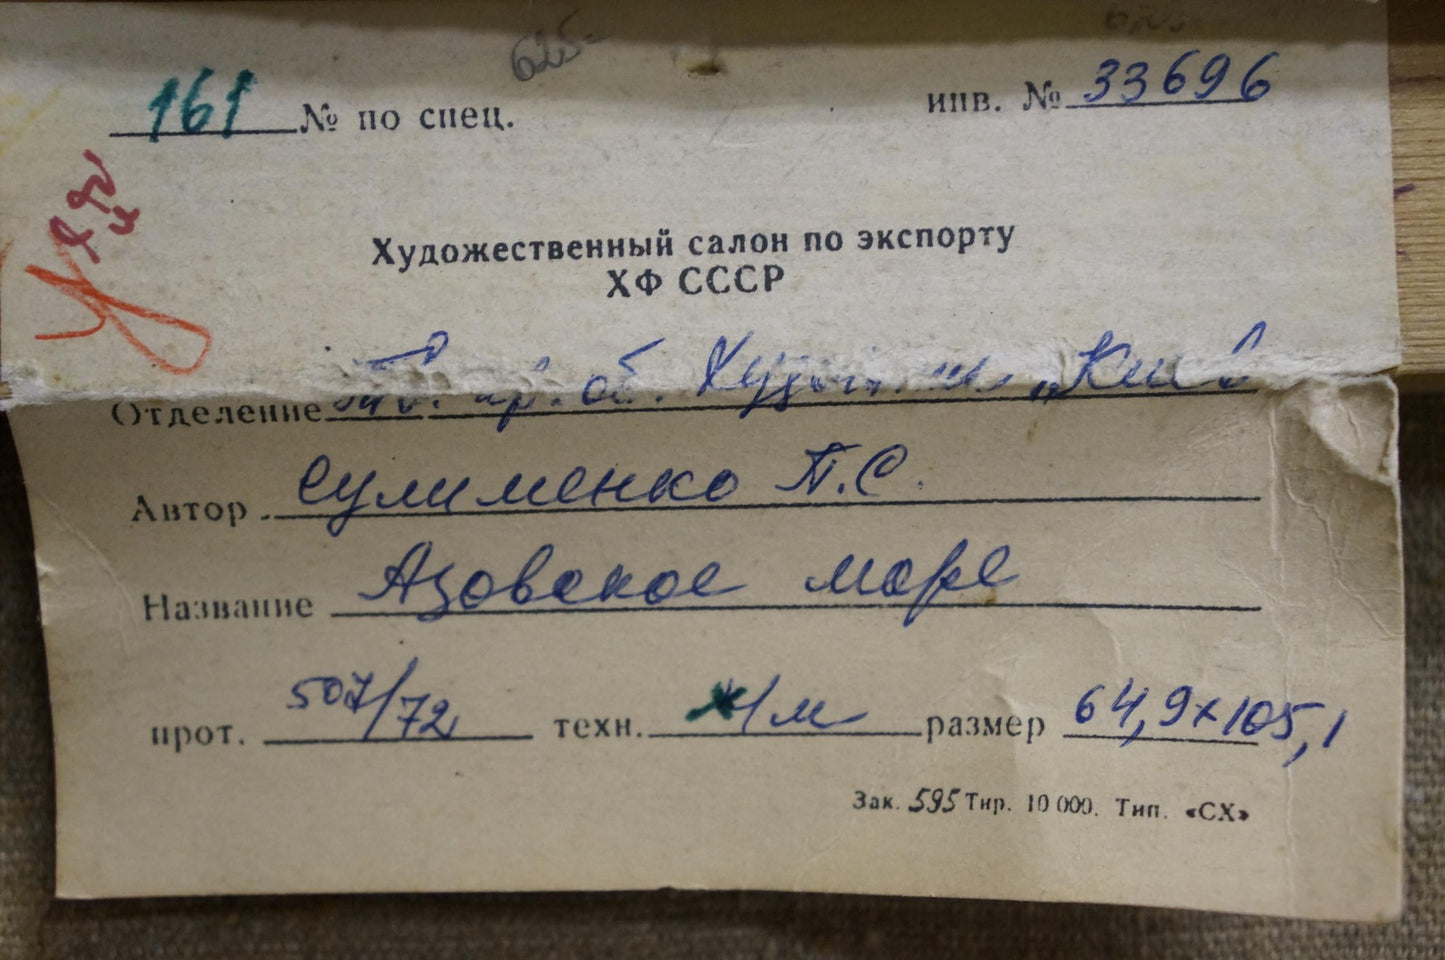 625-
161 № по спец. инв. № 33696
Художественный салон по экспорту
ХФ СССР
Отделение об. „Киев
Автор Сулименко П.С.
Название Азовское море
прот. 507/72 техн. х/м размер 64,9х105,1
Зак. 595 Тир. 10 000. Тип. «СХ»